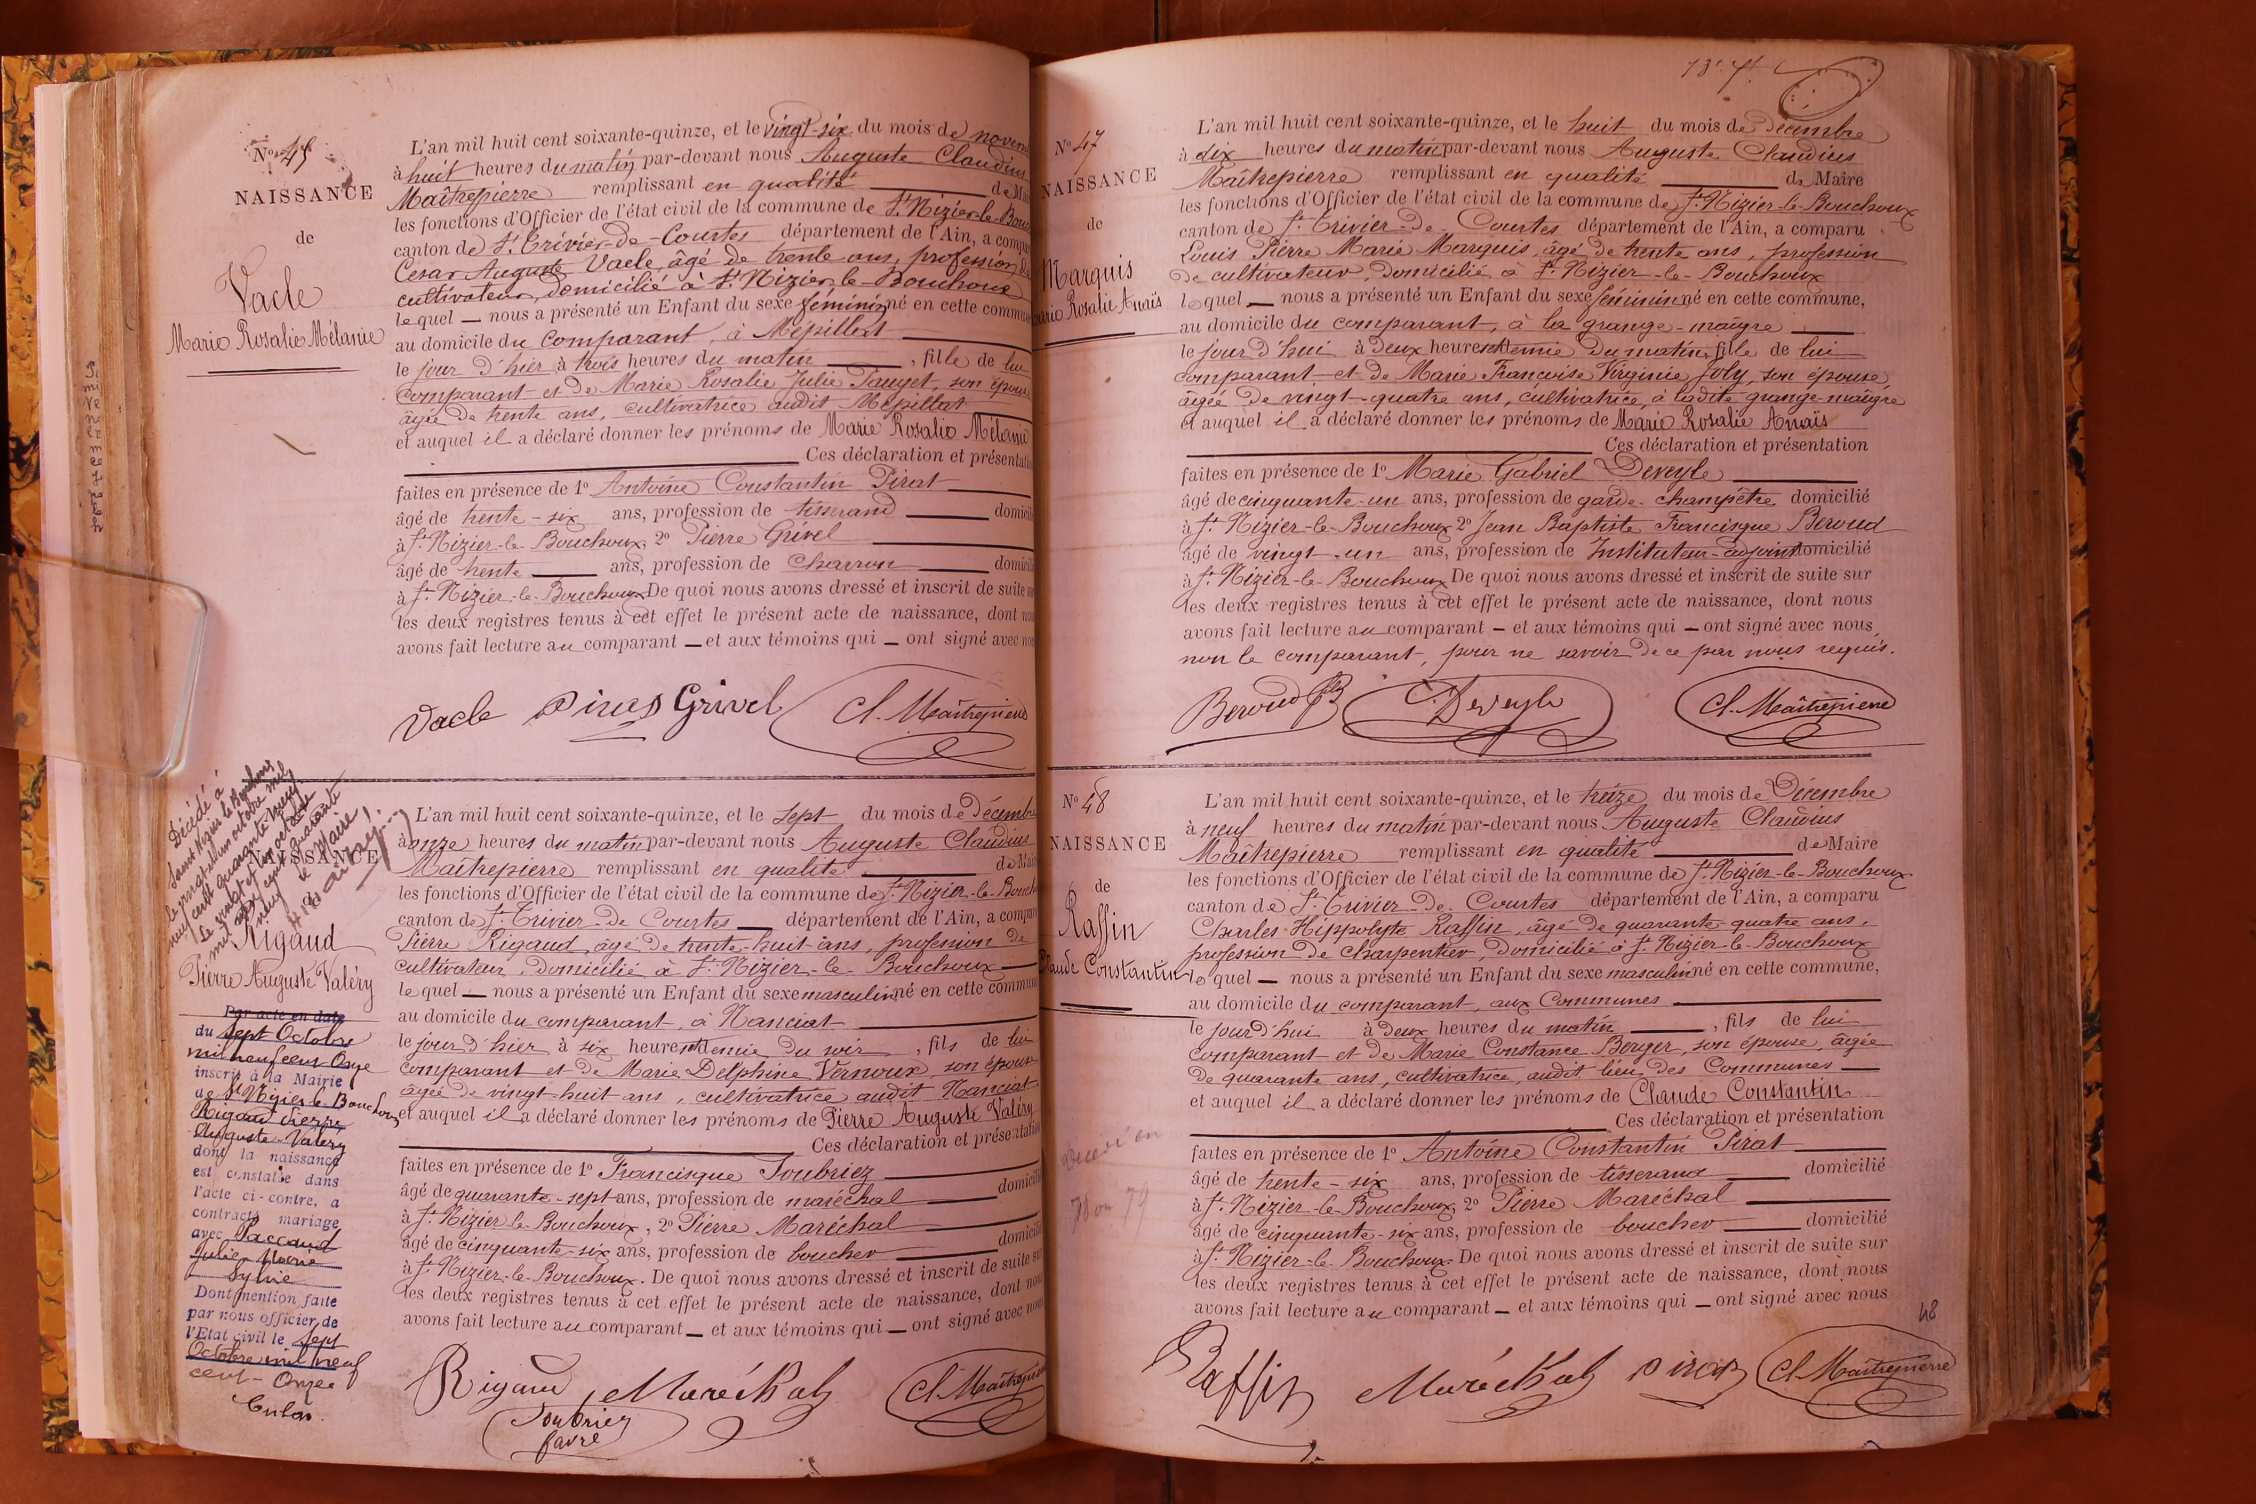 N° 45
NAISSANCE
de
Vacle
Marie Rosalie Mélanie
L'an mil huit cent soixante-quinze, et le vingt-six du mois de novem
à huit heures du matin par-devant nous Auguste Claudius
Maîtrepierre remplissant en qualité de Mai
les fonctions d'Officier de l'état civil de la commune de St Nizier-le-Bouc
canton de St Trivier-de-Courtes département de l'Ain, a compa
Cesar Auguste Vacle âgé de trente ans, profession de
cultivateur, domicilié à St Nizier-le-Bouchoux
lequel — nous a présenté un Enfant du sexe féminin né en cette commun
au domicile du comparant, à Mépillat
le jour d'hier à trois heures du matin, fille de lui
comparant et de Marie Rosalie Julie Pauget, son épouse
âgée de trente ans, cultivatrice audit Mépillat
et auquel il a déclaré donner les prénoms de Marie Rosalie Mélanie
Ces déclaration et présentation
faites en présence de 1° Antoine Constantin Pirat
âgé de trente-six ans, profession de tisserand domicili
à St Nizier-le-Bouchoux, 2° Pierre Grivel
âgé de trente ans, profession de charron domicili
à St Nizier-le-Bouchoux De quoi nous avons dressé et inscrit de suite sur
les deux registres tenus à cet effet le présent acte de naissance, dont nous
avons fait lecture au comparant — et aux témoins qui — ont signé avec nous
Vacle Pirat Grivel Cl. Maîtrepierre
Décédé à
Saint Nizier le Bouchoux
le vingt et un octobre mil
neuf cent quarante neuf
Le vingt et un octobre
mil neuf cent quarante
neuf
le Maire,
NAISSANCE
Rigaud
Pierre Auguste Valéry
Par acte en date
du Sept Octobre
mil neuf cent Onze
inscrit à la Mairie
de St Nizier-le-Bouchoux
Rigaud Pierre
Auguste Valéry
dont la naissance
est constatée dans
l'acte ci-contre, a
contracté mariage
avec Paccaud
Julie Marie
Sylvie
Dont mention faite
par nous officier de
l'Etat civil le Sept
Octobre mil neuf
cent-Onze
L'an mil huit cent soixante-quinze, et le sept du mois de Décembre
à onze heures du matin par-devant nous Auguste Claudius
Maîtrepierre remplissant en qualité de Mair
les fonctions d'Officier de l'état civil de la commune de St Nizier-le-Bouch
canton de St Trivier-de-Courtes département de l'Ain, a comparu
Pierre Rigaud, âgé de trente-huit ans, profession de
cultivateur, domicilié à St Nizier-le-Bouchoux
lequel — nous a présenté un Enfant du sexe masculin né en cette commun
au domicile du comparant, à Nanciat
le jour d'hier à six heures et demie du soir, fils de lui
comparant et de Marie Delphine Vernoux, son épouse
âgée de vingt-huit ans, cultivatrice audit Nanciat
et auquel il a déclaré donner les prénoms de Pierre Auguste Valéry
Ces déclaration et présentation
faites en présence de 1° Francisque Joubriez
âgé de quarante-sept ans, profession de maréchal domicilié
à St Nizier le-Bouchoux, 2° Pierre Maréchal
âgé de cinquante-six ans, profession de boucher domicilié
à St Nizier-le-Bouchoux. De quoi nous avons dressé et inscrit de suite sur
les deux registres tenus à cet effet le présent acte de naissance, dont nous
avons fait lecture au comparant — et aux témoins qui — ont signé avec nous
Rigaud Maréchal Cl. Maîtrepierre
Joubriez
favre
N° 47
NAISSANCE
de
Marquis
Marie Rosalie Anaïs
L'an mil huit cent soixante-quinze, et le huit du mois de Décembre
à dix heures du matin par-devant nous Auguste Claudius
Maîtrepierre remplissant en qualité de Maire
les fonctions d'Officier de l'état civil de la commune de St Nizier-le-Bouchoux
canton de St Trivier-de-Courtes département de l'Ain, a comparu
Louis Pierre Marie Marquis, âgé de trente ans, profession
de cultivateur, domicilié à St Nizier-le-Bouchoux
lequel — nous a présenté un Enfant du sexe féminin né en cette commune,
au domicile du comparant, à la grange-maigre
le jour d'hui à deux heures et demie du matin, fille de lui
comparant et de Marie Françoise Virginie Joly, son épouse,
âgée de vingt-quatre ans, cultivatrice, à ladite grange-maigre
et auquel il a déclaré donner les prénoms de Marie Rosalie Anaïs
Ces déclaration et présentation
faites en présence de 1° Marie Gabriel Deveyle
âgé de cinquante-un ans, profession de garde-champêtre domicilié
à St Nizier-le-Bouchoux 2° Jean Baptiste Francisque Beroud
âgé de vingt-un ans, profession de Instituteur-adjoint domicilié
à St Nizier-le-Bouchoux De quoi nous avons dressé et inscrit de suite sur
les deux registres tenus à cet effet le présent acte de naissance, dont nous
avons fait lecture au comparant — et aux témoins qui — ont signé avec nous,
non le comparant, pour ne savoir de ce par nous requis.
Beroud Deveyle Cl. Maîtrepierre
N° 48
NAISSANCE
de
Raffin
Claude Constantin
L'an mil huit cent soixante-quinze, et le treize du mois de Décembre
à neuf heures du matin par-devant nous Auguste Claudius
Maîtrepierre remplissant en qualité de Maire
les fonctions d'Officier de l'état civil de la commune de St Nizier-le-Bouchoux
canton de St Trivier-de-Courtes département de l'Ain, a comparu
Charles Hippolyte Raffin, âgé de quarante-quatre ans,
profession de charpentier, domicilié à St Nizier-le-Bouchoux
lequel — nous a présenté un Enfant du sexe masculin né en cette commune,
au domicile du comparant, aux Communes
le jour d'hui à deux heures du matin, fils de lui
comparant et de Marie Constance Berger, son épouse, âgée
de quarante ans, cultivatrice, audit lieu des Communes
et auquel il a déclaré donner les prénoms de Claude Constantin
Ces déclaration et présentation
faites en présence de 1° Antoine Constantin Pirat
âgé de trente-six ans, profession de tisserand domicilié
à St Nizier-le-Bouchoux, 2° Pierre Maréchal
âgé de cinquante-six ans, profession de boucher domicilié
à St Nizier-le-Bouchoux De quoi nous avons dressé et inscrit de suite sur
les deux registres tenus à cet effet le présent acte de naissance, dont nous
avons fait lecture au comparant — et aux témoins qui — ont signé avec nous
48
Raffin Maréchal Pirat Cl. Maîtrepierre